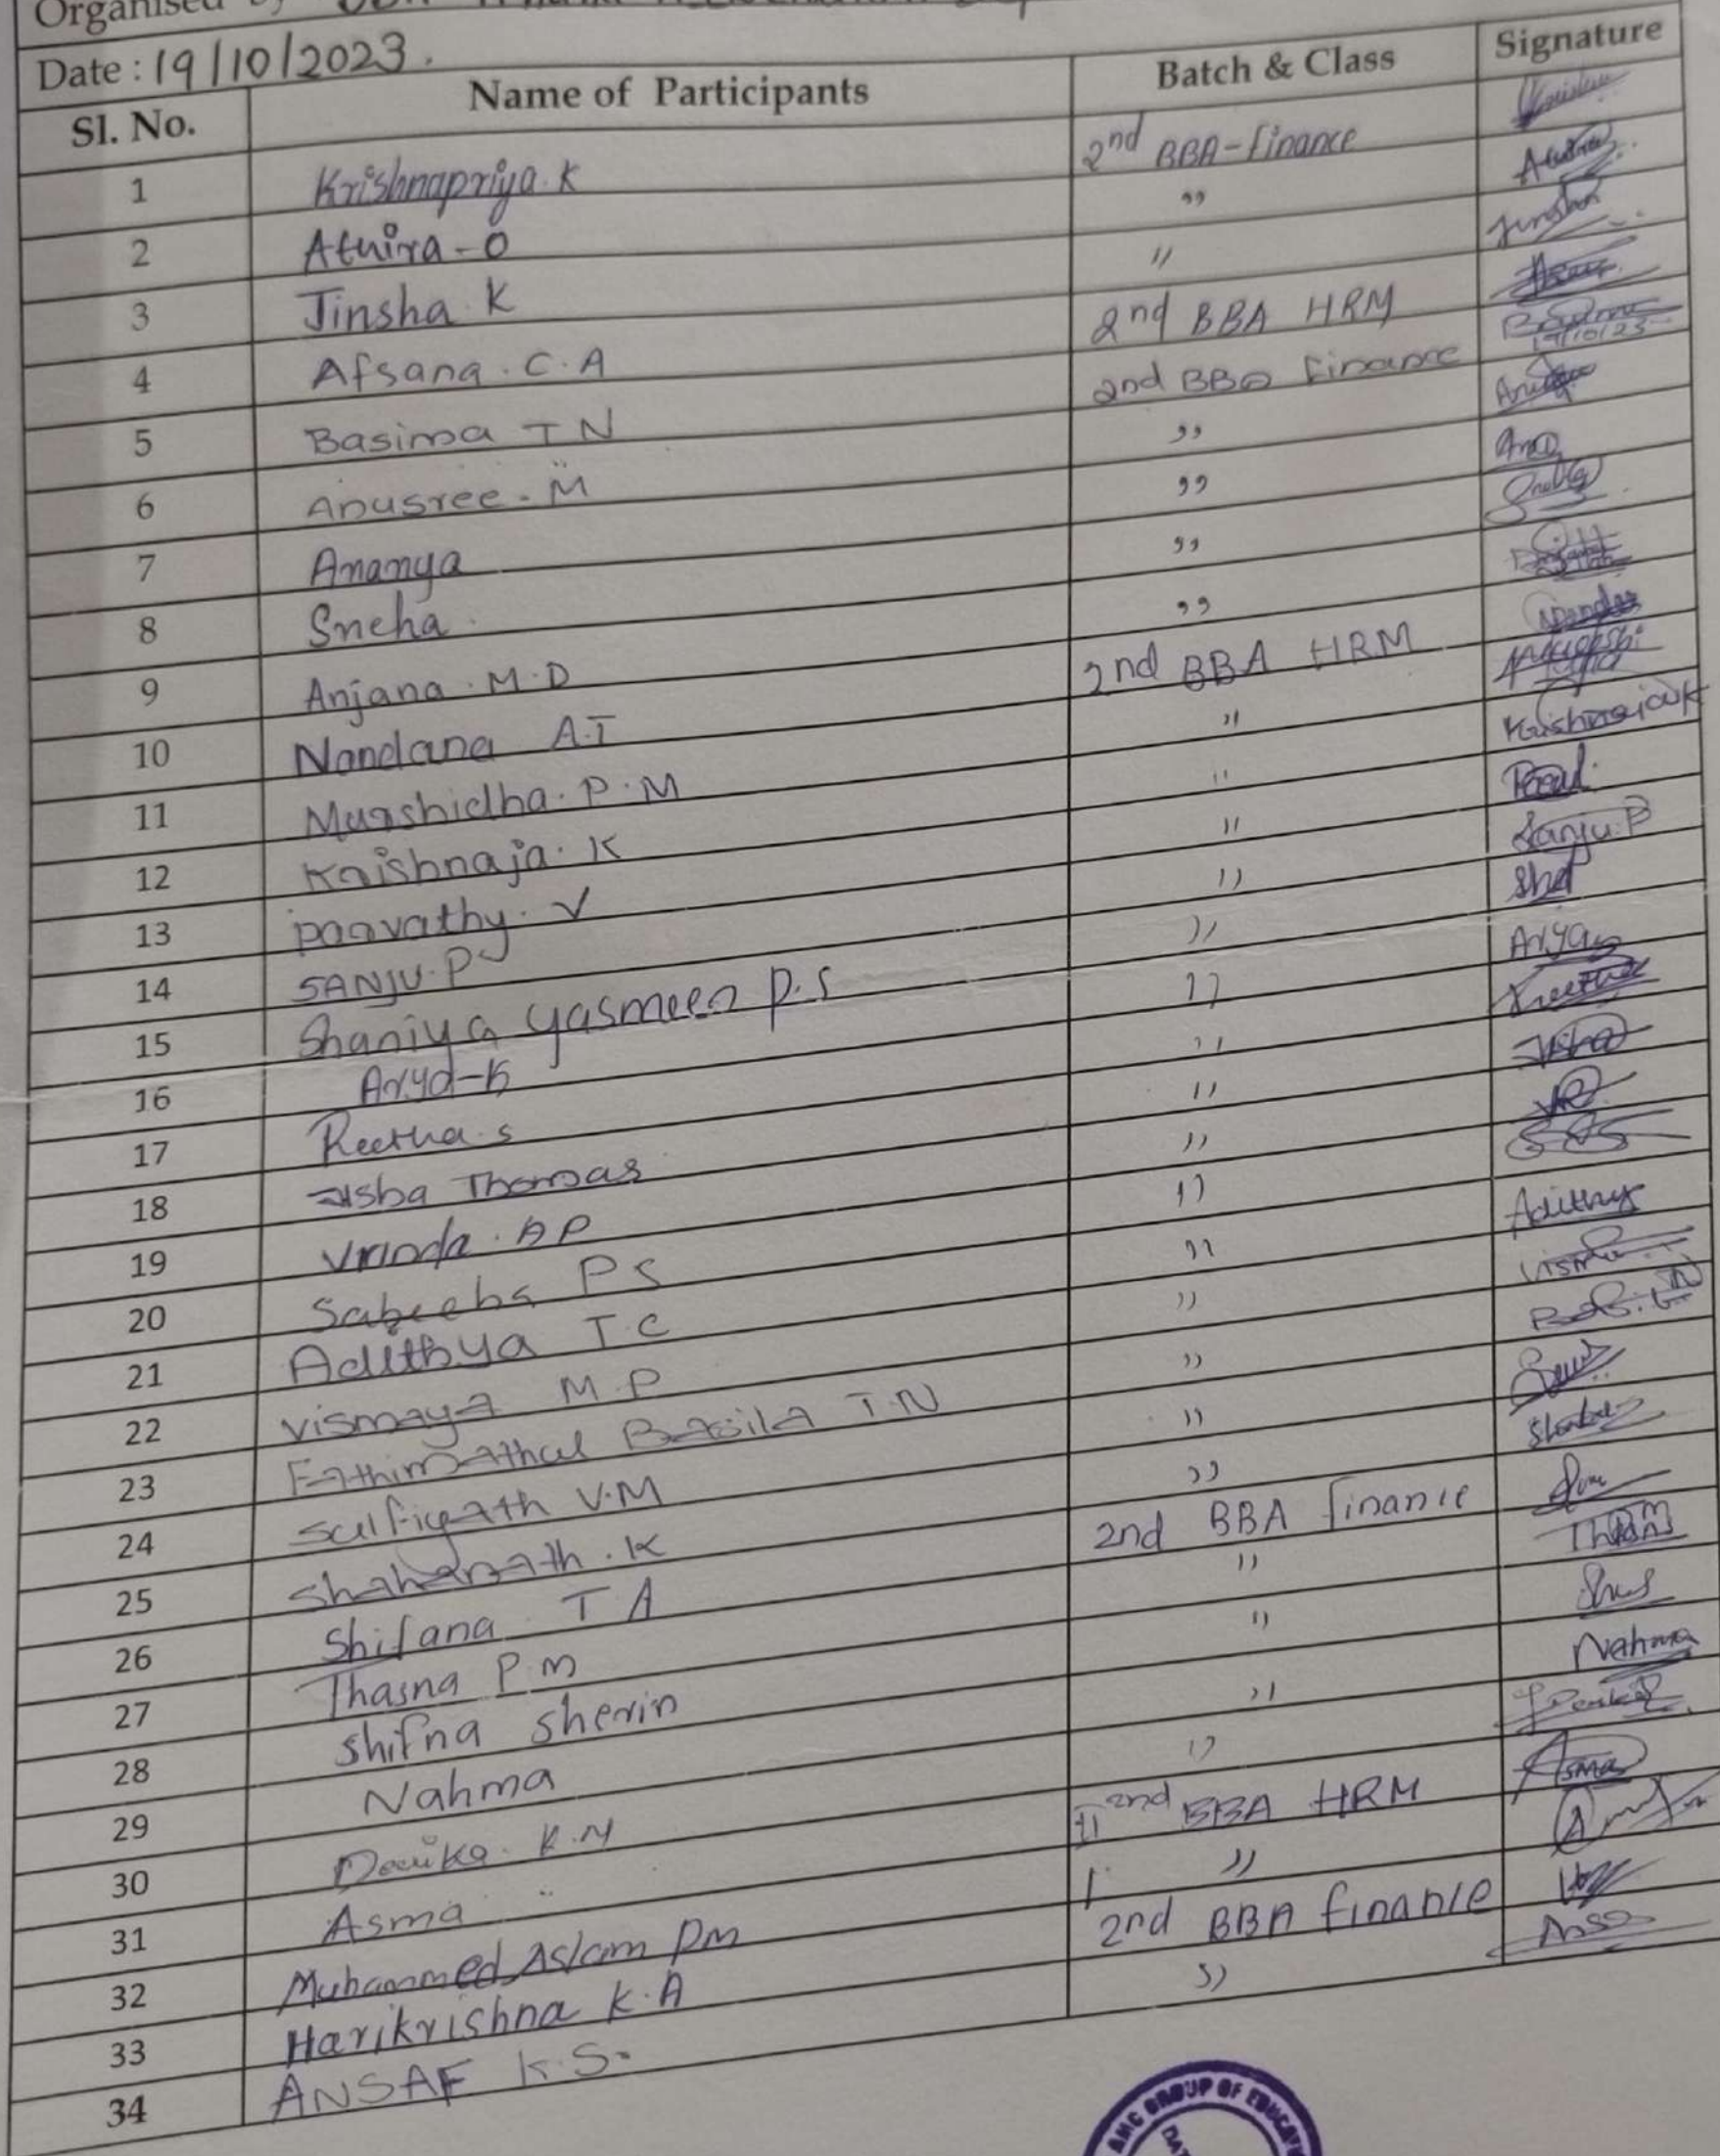 Organised by
Date : 19/10/2023.
Sl. No. Name of Participants Batch & Class Signature
1 Krishnapriya. K 2nd BBA-finance
2 Athira - O ,,
3 Jinsha K "
4 Afsana . C. A 2nd BBA HRM
5 Basima T N 2nd BBA finance 19/10/23
6 Anusree. M ,,
7 Ananya ,,
8 Sneha ,,
9 Anjana . M. D ,,
10 Nandana A.T 2nd BBA HRM
11 Murshidha. P. M "
12 Krishnaja. K " Krishnaja K
13 parvathy. V "
14 SANJU. P " Sanju. P
15 Shaniya yasmeen P.S "
16 Arya-K " Arya
17 Reetha. s "
18 Jisha Thomas "
19 Vrinda. A P "
20 Sabeeha P S "
21 Adithya T. C " Adithya
22 vismaya M. P "
23 Fathimathul Basila T. N "
24 Salfiyath V. M "
25 Shahanath . K "
26 Shifana T A 2nd BBA finance
27 Thasna P. m "
28 Shifna sherin "
29 Nahma " Nahma
30 Devika. K. M "
31 Asma 2nd BBA HRM Asma
32 Muhammed Aslam pm "
33 Harikrishna K. A 2nd BBA finance
34 ANSAF K. S. "
AMC GROUP OF EDUCAT